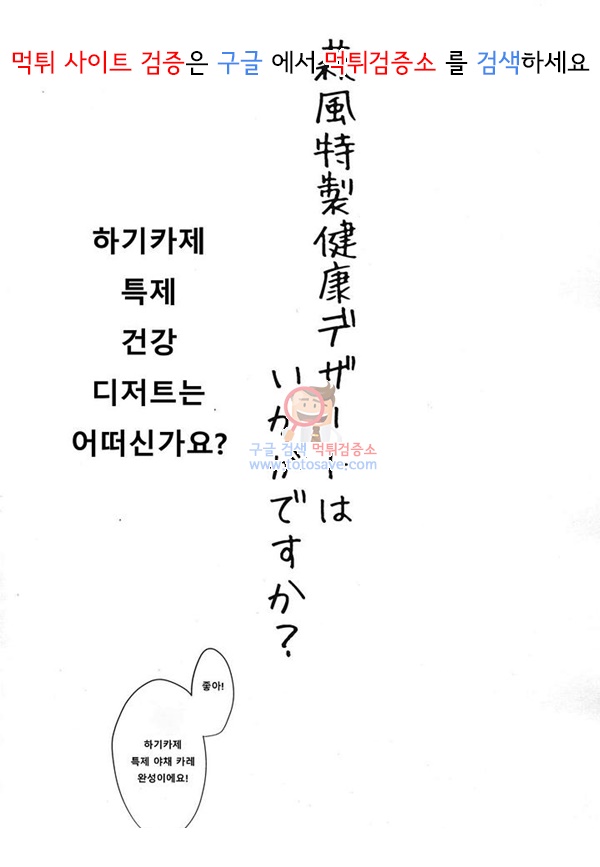 먹튀 사이트 검증은 구글 에서 먹튀검증소 를 검색하세요
萩風特製健康デザートは
いかがですか?
하기카제
특제
건강
디저트는
어떠신가요?
구글 검색 먹튀검증소
www.totosave.com
좋아!
하기카제
특제 야채 카레
완성이에요!